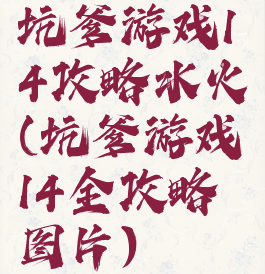 坑爹游戏1
4攻略水火
(坑爹游戏
14全攻略
图片)